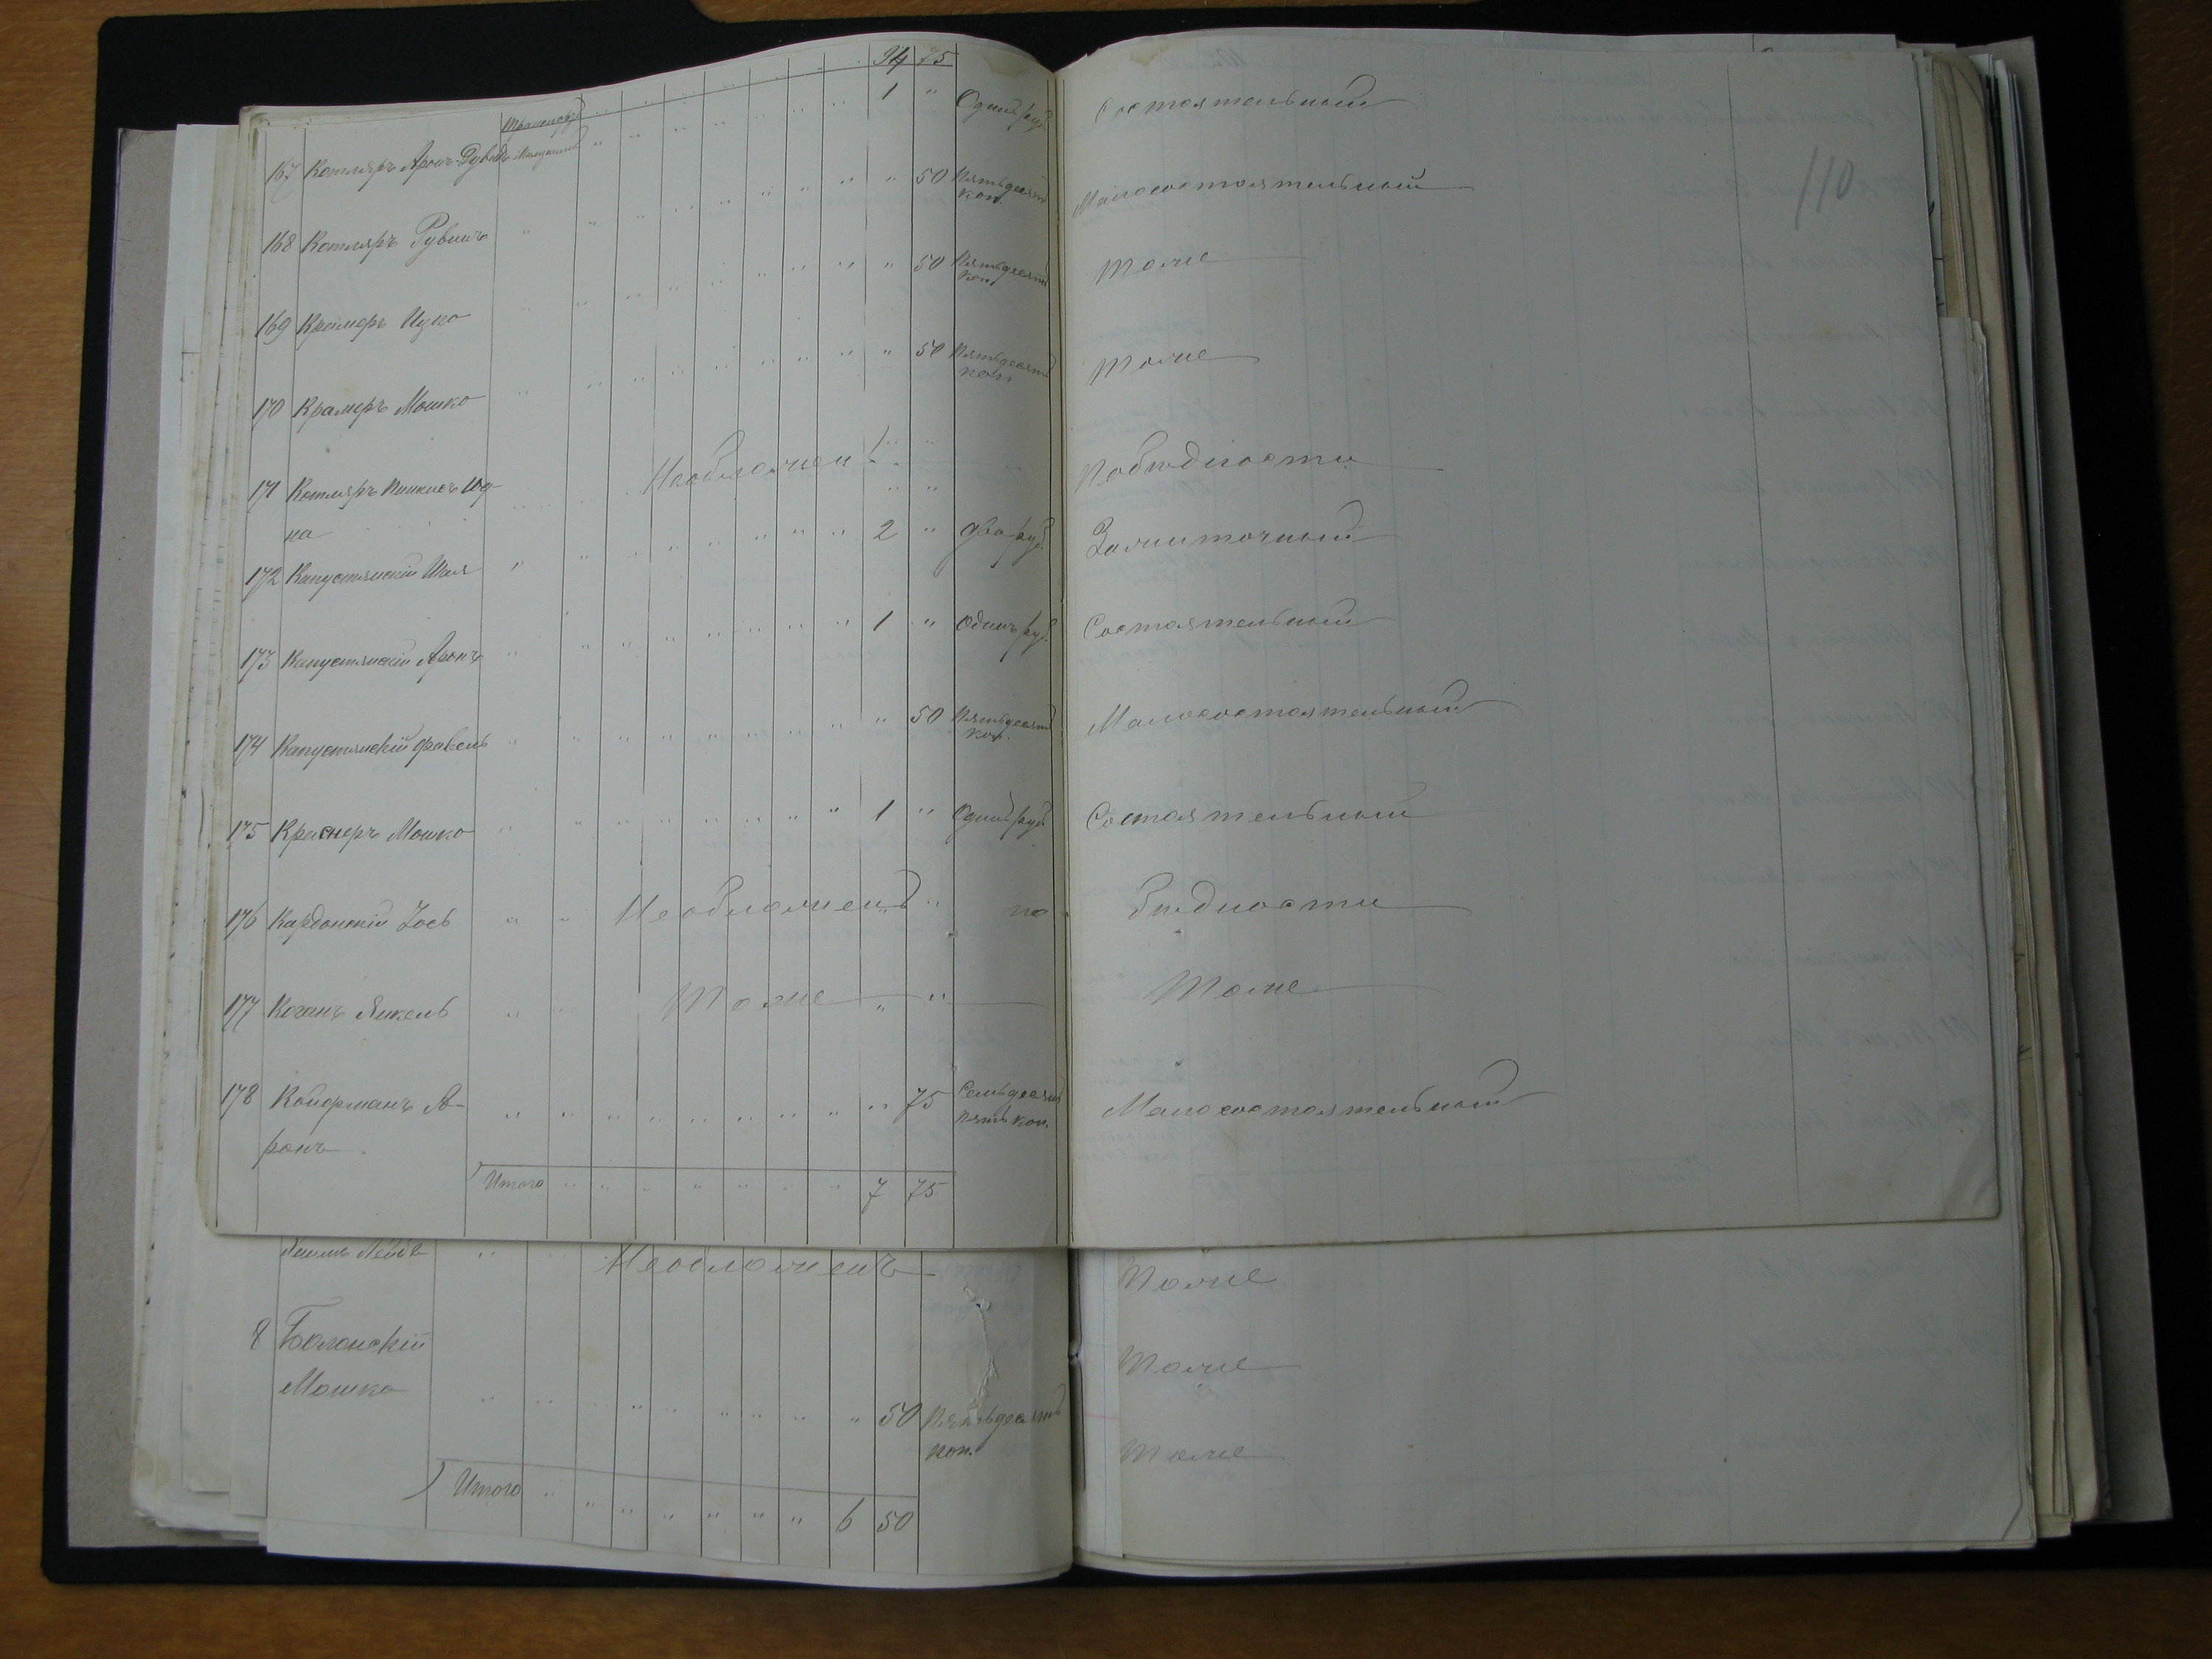 34 75
110
167 Котляръ Аронъ Рувинъ 1 " Одинъ руб. Состоятельный
168 Котляръ Рувинъ " " 50 Пятьдесятъ Малосостоятельный
коп.
169 Крамеръ Ицко " " 50 Пятьдесятъ Тоже
коп.
170 Крамеръ Мошко " " 50 Пятьдесятъ Тоже
коп.
171 Котляръ Пинкасъ Юд- Необложенъ По бѣдности
ка
172 Капустянскій Шая " 2 " Два руб. Зажиточный
173 Капустянскій Аронъ " 1 " Одинъ руб. Состоятельный
174 Капустянскій Файвель " " 50 Пятьдесятъ Малосостоятельный
коп.
175 Краснеръ Мошко " 1 " Одинъ руб. Состоятельный
176 Кардонскій Зось " " Необложенъ " по бѣдности
177 Коганъ Янкель " Тоже " " Тоже
178 Койфманъ А- " " 75 Семьдесятъ Малосостоятельный
ронъ пять коп.
Итого 7 75
Лейба " Необложенъ Тоже
8 Балонскій Тоже
Мошко " " 50 Пятьдесятъ Тоже
коп.
Итого 6 50